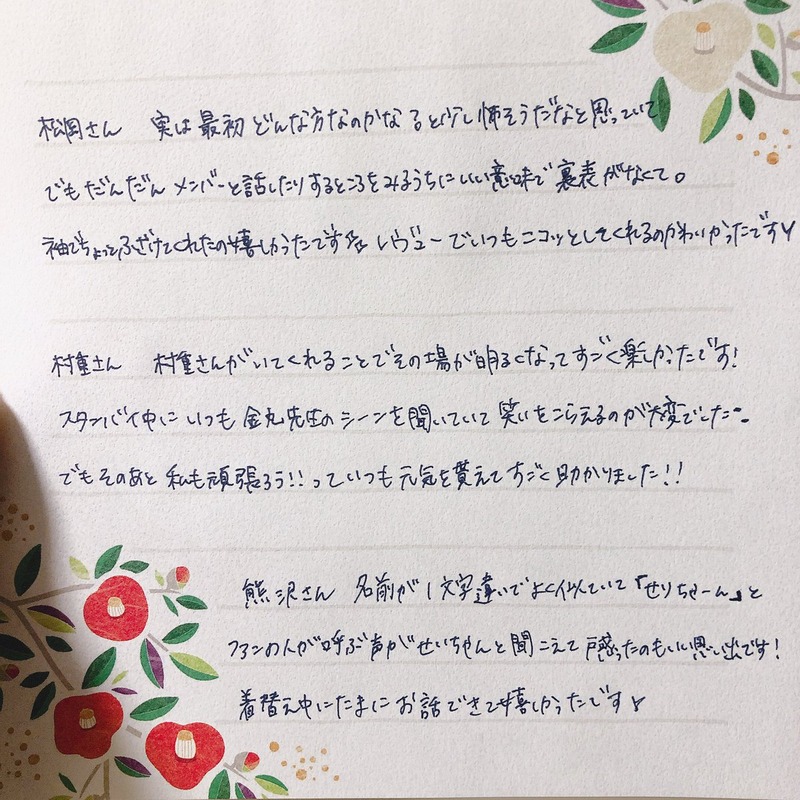 松岡さん 実は最初どんな方なのかなると少し怖そうだなと思っていて
でもだんだんメンバーと話したりするところをみるうちにいい意味で裏表がなくて。
袖でちょっとふざけてくれたの嬉しかったです レヴューでいつもニコッとしてくれるのかわいかったです
村重さん 村重さんがいてくれることでその場が明るくなってすごく楽しかったです!
スタンバイ中にいつも金丸先生のシーンを聞いていて笑いをこらえるのが大変でした
でもそのあと私も頑張ろう!!っていつも元気を貰えてすごく助かりました!!
熊沢さん 名前が1文字違いでよく似ていて「せりちゃーん」と
ファンの人が呼ぶ声がせいちゃんと聞こえて戸惑ったのもいい思い出です!
着替え中にたまにお話できて嬉しかったです